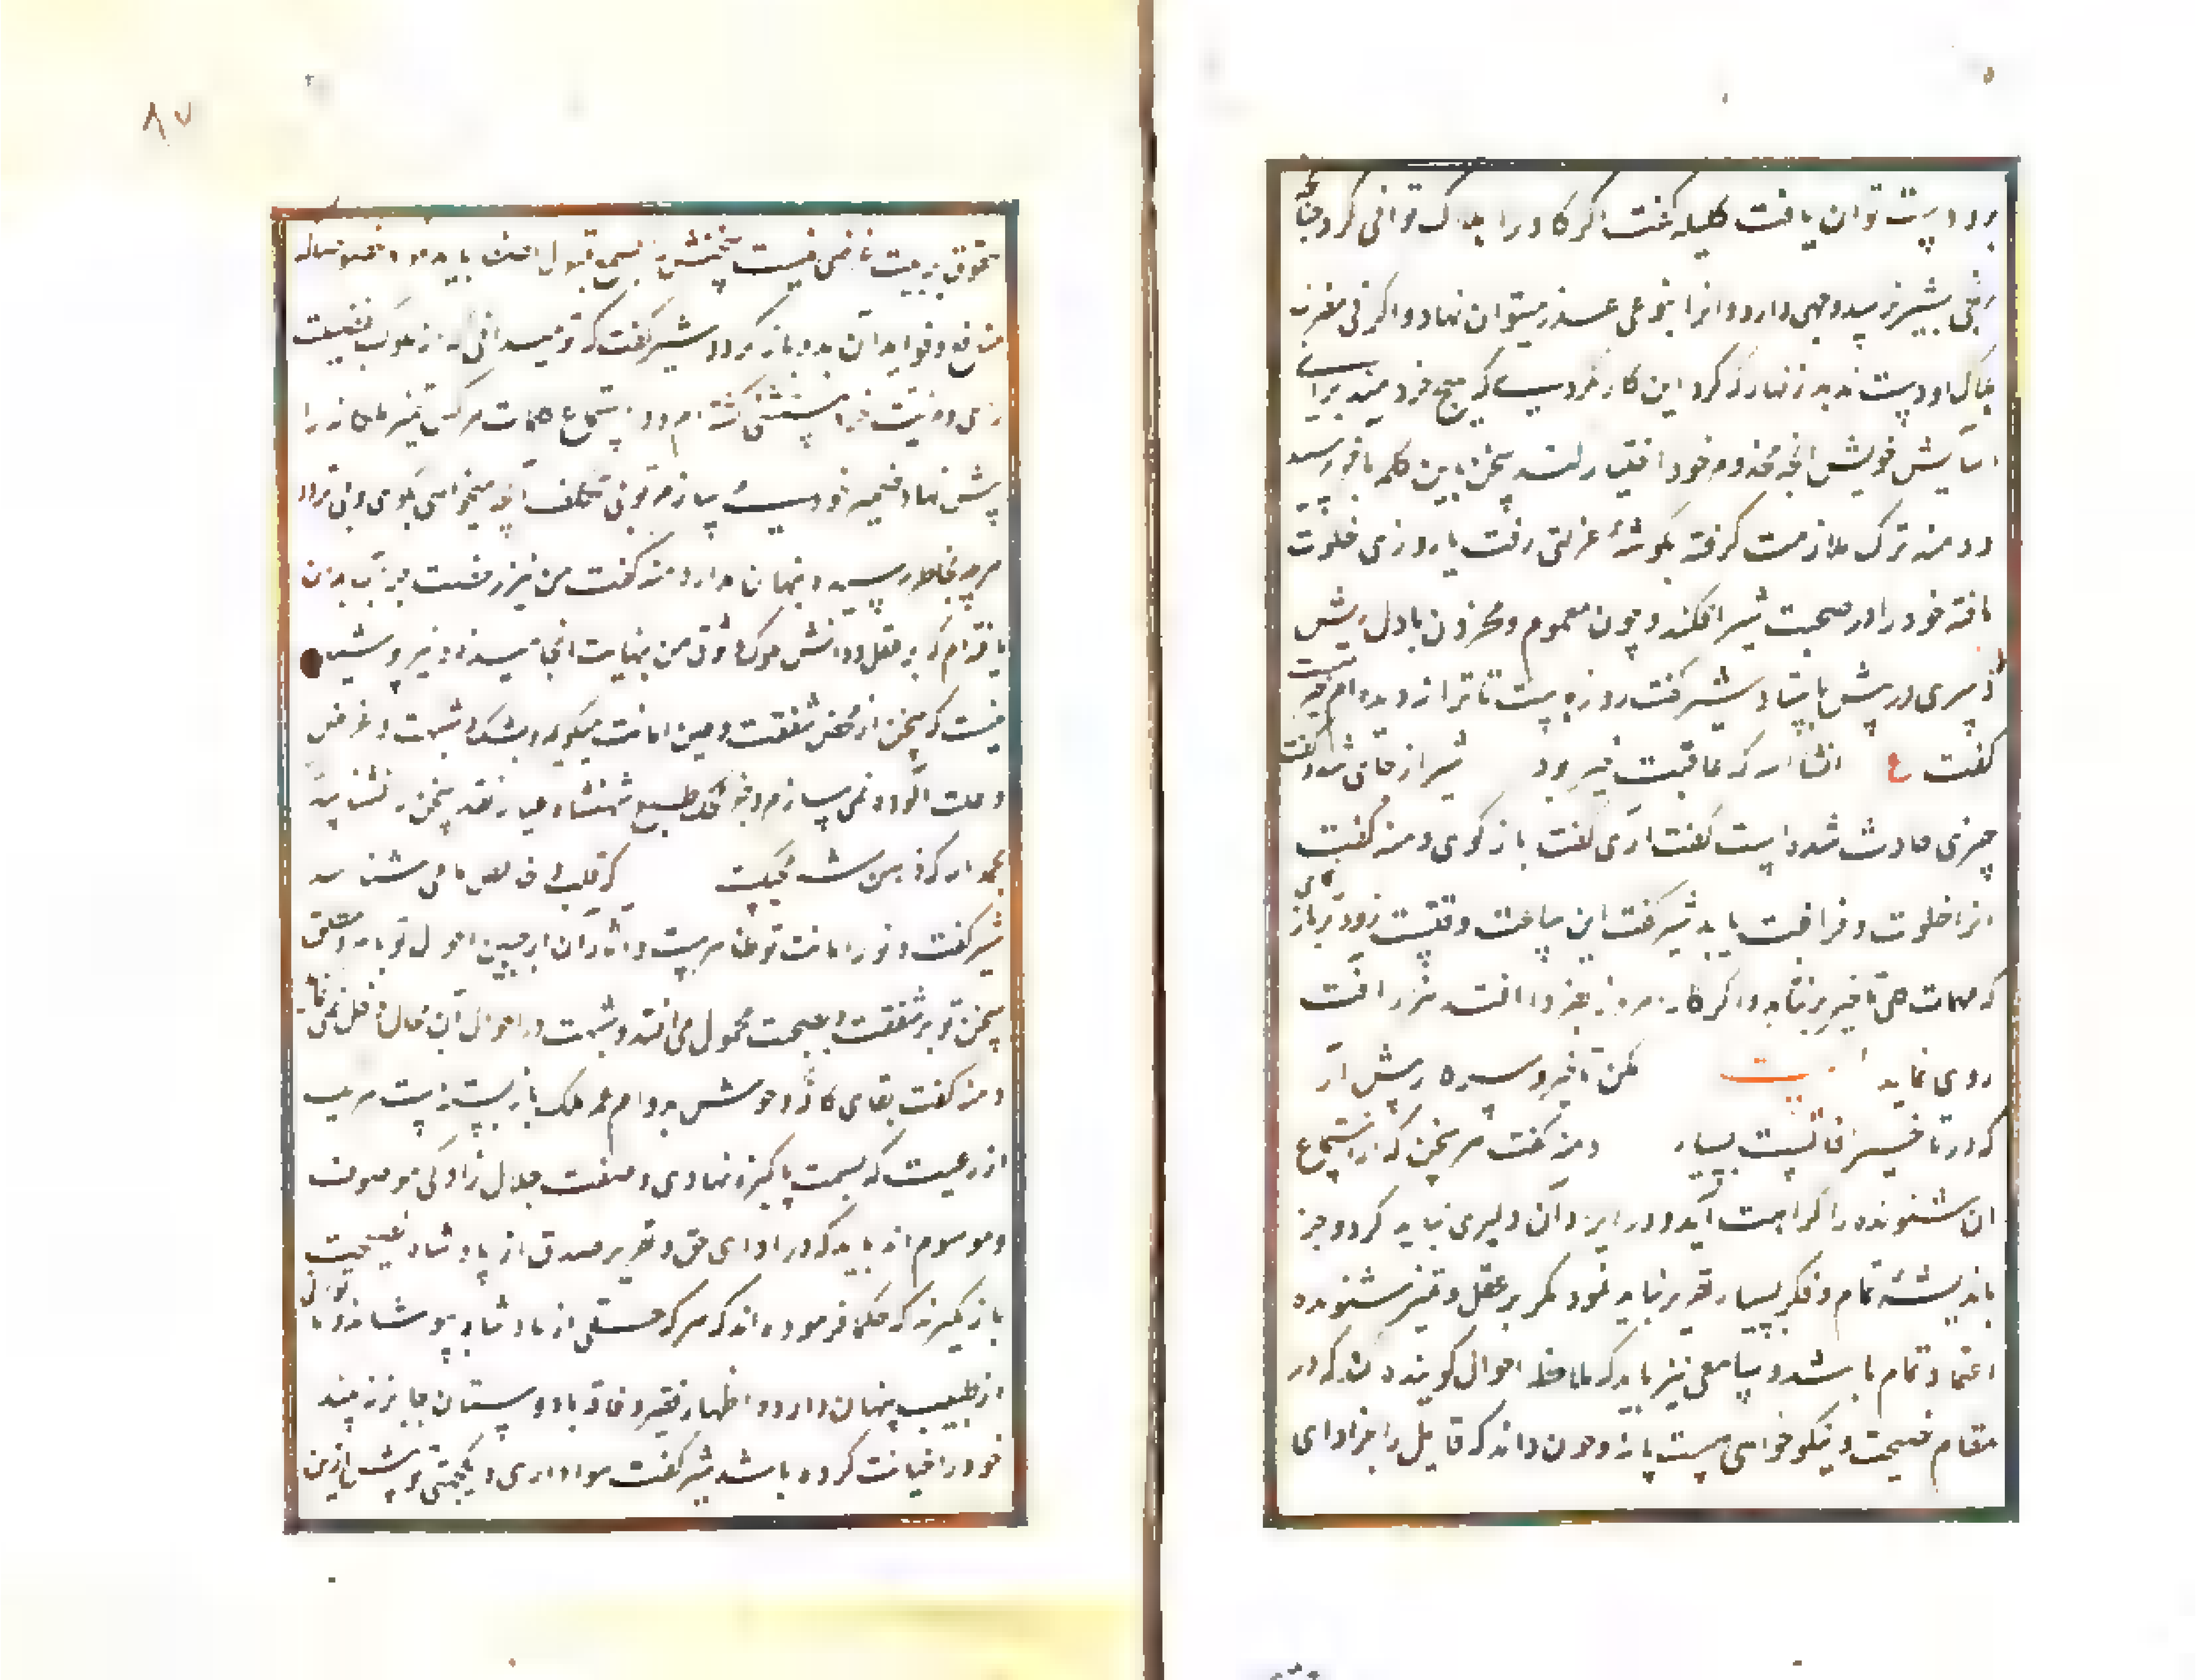 برو دست توان یافت کلیله گفت اگر گاو را هلاک توانی کرد چنانچه
رنجی بشیر نرسد وجهی دارد و انرا بنوعی عذر میتوان نهاد و اگر بی مضرت
هلاک او دست ندهد زنهار که کرد این کار نگردی که هیچ خردمند برای
اسایش خویش رنج مخدوم خود اختیار نکند سخن باین کلمه باخر رسید
و دمنه ترک ملازمت گرفته بگوشهٔ عزلتی رفت تا روزی خلوت
یافته خود را در صحبت شیر افکند و چون مغموم و محزون با دل ریش
و سری در پیش بایستاد شیر گفت روزهاست تا ترا ندیده‌ام خیر است
گفت ع انشاالله که عاقبت خیر بود شیر از جای شد و گفت
چیزی حادث شده است گفت اری گفت بازگوی دمنه گفت
انرا خلوت و فراغت باید شیر گفت این ساعت وقتست زودتر باز نمای
که مهمات ملک تاخیر برنتابد و اگر کار امروز بفردا افتد هزار افت
روی نماید بیت مکن تاخیر و سر کار پیش آر
که در تاخیر افاتست بسیار دمنه گفت هر سخن که از استماع
ان شنونده را کراهت آید و در ایراد آن دلیری نباید کرد و جز
باندیشهٔ تمام و فکر بسیار تقریر نباید نمود مگر بر عقل و تمیز شنونده
اعتماد تمام باشد و سامع نیز باید که ملاحظه احوال گوینده کند که در
مقام نصیحت و نیکو خواهی هست یا نه و چون داند که قایل را جز ادای
۸۷
حقوق تربیت غرضی نیست سخنش بسمع قبول اصغا باید نمود خصوصا که
منافع و فواید آن بدو باز گردد شیر گفت که تو میدانی که از ملوک بفضیلت
رای و مزیت خرد مستثنی گشته‌ام و در استماع کلمات هر کس تمیز ملکانه را
پیش نهاد ضمیر خود میسازم تو بی تکلف انچه میخواهی بگوی و بی تردد
هر چه بخاطر رسیده پنهان مدار دمنه گفت من نیز رخصت جرات بدان
یافته‌ام که بر عقل و دانش ملک وثوق من بنهایت انجامیده و نیز پوشیده
نیست که سخن از محض شفقت و عین امانت میگویم و بشک و شبهت و غرض
و علت آلوده نمی سازم و جز محک طبع شهنشاه عیار نقد سخن را نشناسد
بحمد الله که ذهن شه محکیست که قلب و خالص ما می شناسد
شیر گفت وفور امانت تو ظاهرست و آثار آن از جبین احوال تو باهر و مطلق
سخن تو بر شفقت و نصیحت محمول می‌افتد و شبهت در احوال آن مجال دخل نمی یابد
دمنه گفت بقای کافه وحوش بدوام عمر ملک باز بسته است هر یک
از رعیت که بسمت پاکیزه نهادی و صفت حلال زادگی موصوف
و موسوم اند باید که در ادای حق و تقریر صدق از پادشاه نصیحت
باز نگیرند که حکما فرموده‌اند که هر که حقی از پادشاه بپوشاند و ناتوانی
از طبیب پنهان دارد و اظهار فقر و فاقه با دوستان جایز نه بیند
خود را خیانت کرده باشد شیر گفت هواداری و یکجهتی تو پیش ازین